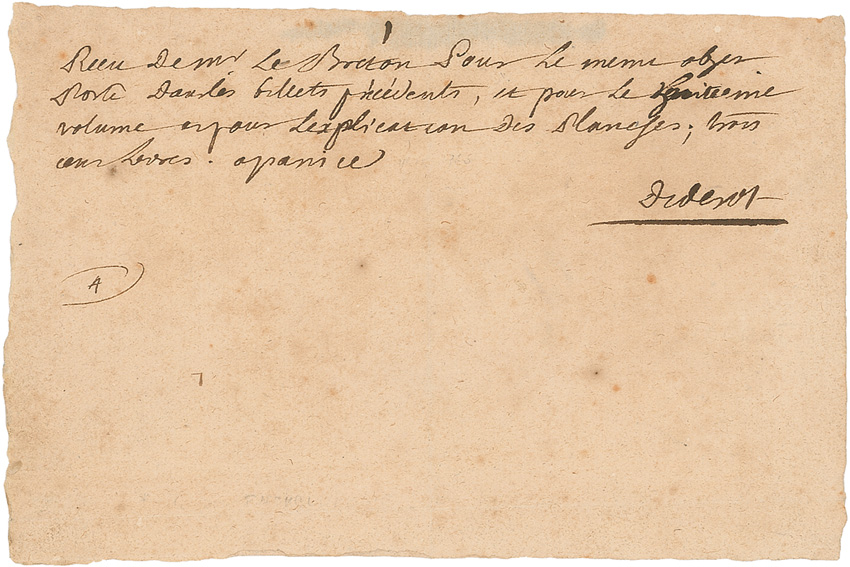 Recu De mr Le Breton Pour Le meme objet
Porté Dans les billets précédents, et pour Le huitieme
volume et pour L'explication Des Planches; trois
cent livres. a paris ce
Diderot
4